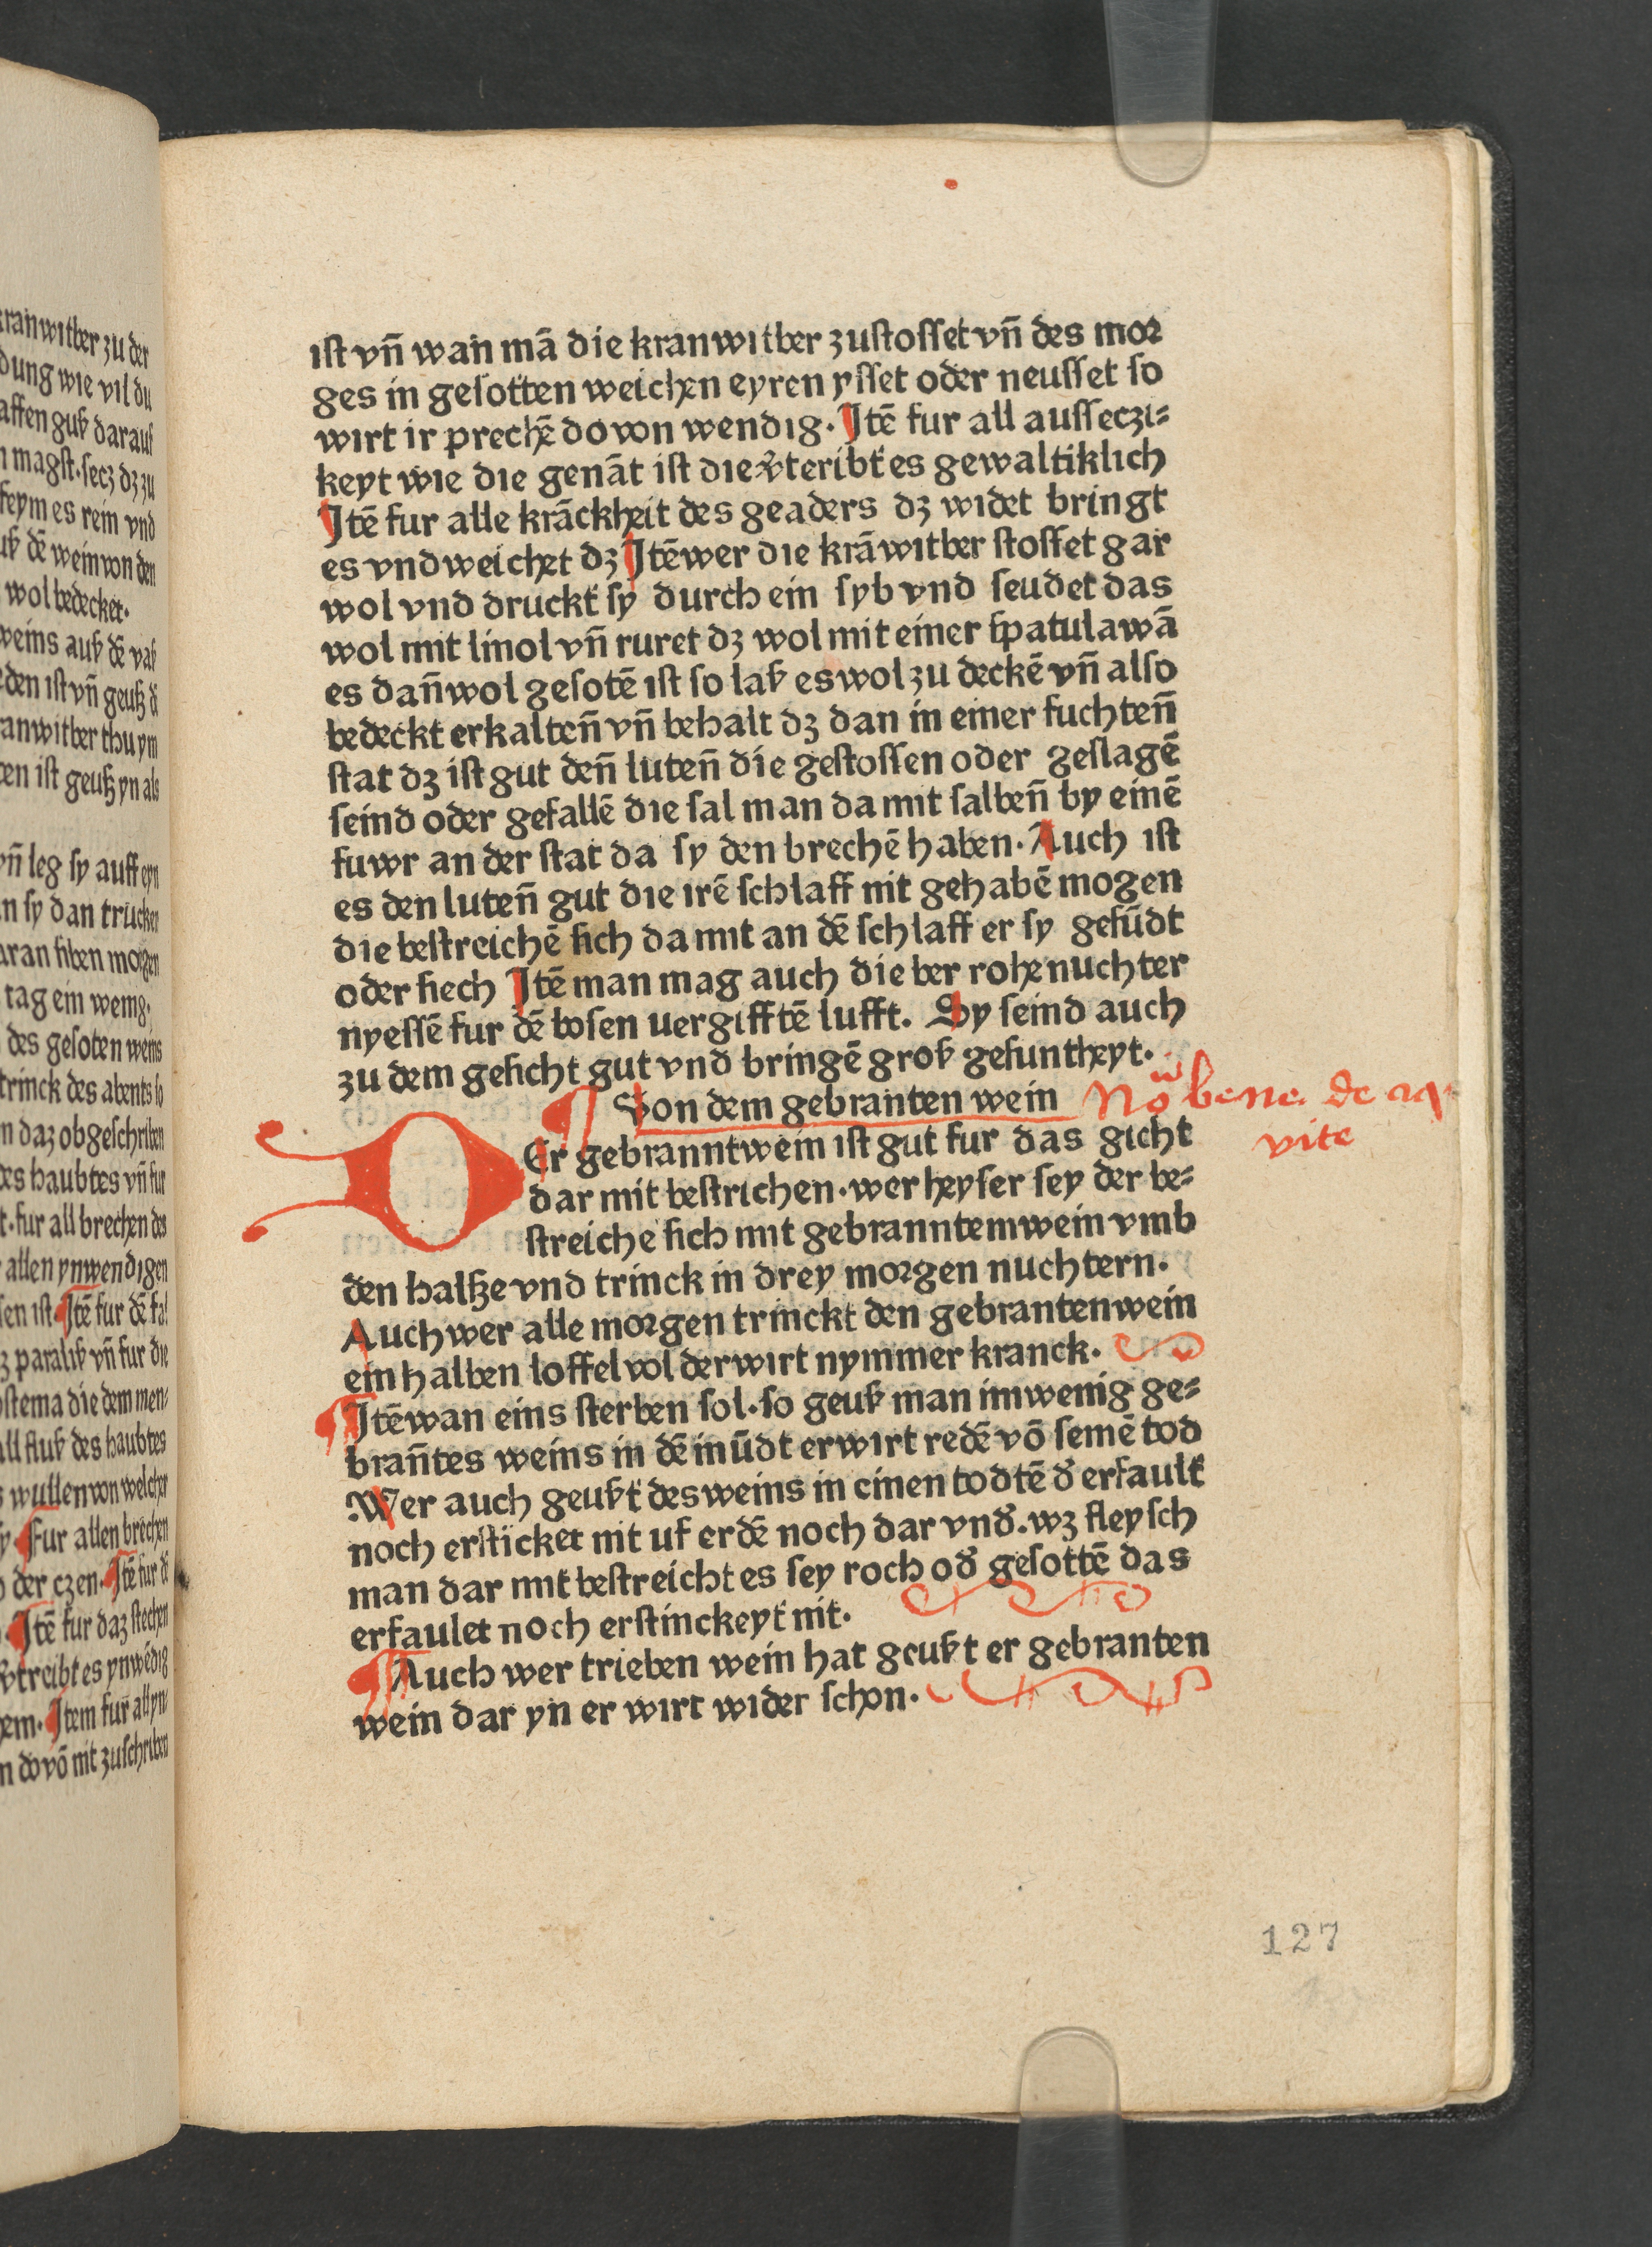 ist vn̄ wan mā die kranwitber zustosset vn̄ des mor
ges in gesotten weichen eyren ysset oder neusset so
wirt ir prechē do von wendig. Itē fur all ausseczi⸗
keyt wie die genāt ist die vͦteribt es gewaltiklich
Itē fur alle krāckheit des geaders dz widet bringt
es vnd weichet dz Itē wer die krāwitber stosset gar
wol vnd druckt sy durch ein syb vnd seudet das
wol mit linol vn̄ ruret dz wol mit einer spatula wā
es dan̄ wol gesotē ist so laß es wol zu deckē vn̄ also
bedeckt erkalten̄ vn̄ behalt dz dan in einer fuchten̄
stat dz ist gut den̄ luten̄ die gestossen oder geslagē
seind oder gefallē die sal man da mit salben̄ by einē
fuwr an der stat da sy den brechē haben. Auch ist
es den luten̄ gut die irē schlaff nit gehabē mogen
die bestreichē sich da mit an dē schlaff er sy gesūdt
oder siech Itē man mag auch die ber rohe nuchter
nyessē fur dē bosen uergifftē lufft. Sy seind auch
zu dem gesicht gut vnd bringē groß gesuntheyt.
¶ Von dem gebranten wein
bene de aq
vite
DEr gebrannt wein ist gut fur das gicht
dar mit bestrichen. wer heyser sey der be⸗
streiche sich mit gebranntem wein vmb
den halße vnd trinck in drey morgen nuchtern.
Auch wer alle morgen trinckt den gebranten wein
ein halben loffel vol der wirt nymmer kranck.
¶ Itē wan eins sterben sol. so geuß man im wenig ge⸗
bran̄tes weins in dē mūdt er wirt redē vō semē tod
Wer auch geußt des weins in einen todtē dͦ erfault
noch ersticket nit uf erdē noch dar vndͦ. wz fleysch
man dar mit bestreicht es sey roch odͦ gesottē das
erfaulet noch erstinckeyt nit.
¶ Auch wer trieben wein hat geußt er gebranten
wein dar yn er wirt wider schon.
127